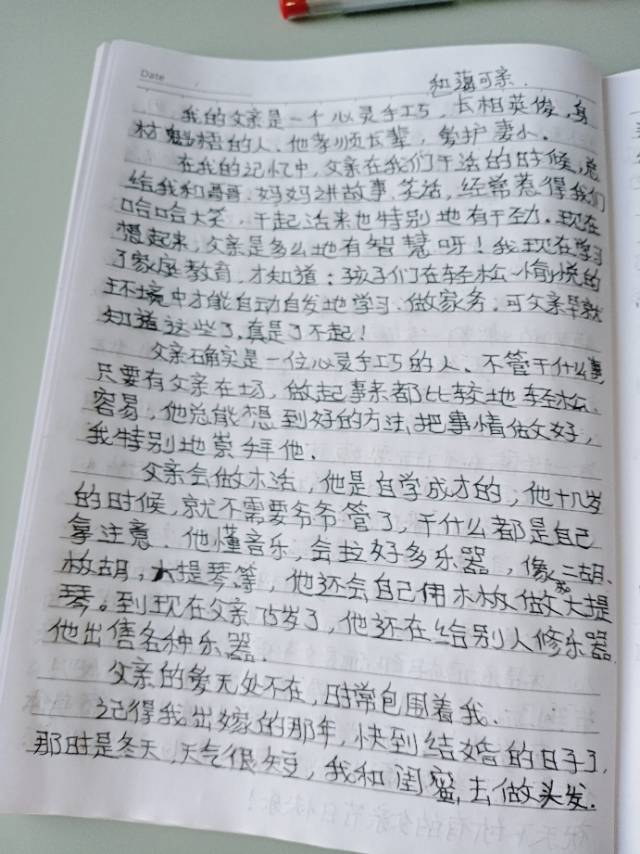 Date
和蔼可亲.
我的父亲是一个心灵手巧,长相英俊,身
材魁梧的人.他孝顺长辈,爱护妻小.
在我的记忆中,父亲在我们干活的时候,总
给我和哥哥.妈妈讲故事.笑话,经常惹得我们
哈哈大笑,干起活来也特别地有干劲.现在
想起来,父亲是多么地有智慧呀!我现在学习
了家庭教育,才知道:孩子们在轻松愉悦的
环境中才能自动自发地学习.做家务.可父亲早就
知道这些了,真是了不起!
父亲确实是一位心灵手巧的人.不管干什么事
只要有父亲在场,做起事来都比较地轻松.
容易,他总能想到好的方法,把事情做好,
我特别地崇拜他.
父亲会做木活,他是自学成才的,他十几岁
的时候,就不需要爷爷管了,干什么都是自己
拿注意.他懂音乐,会拉好多乐器,像二胡.
板胡,大提琴等,他还会自己用木板做成大提
琴。到现在父亲75岁了,他还在给别人修乐器
他出售各种乐器.
父亲的爱无处不在,时常包围着我.
记得我出嫁的那年,快到结婚的日子了,
那时是冬天,天气很短,我和闺蜜去做头发.